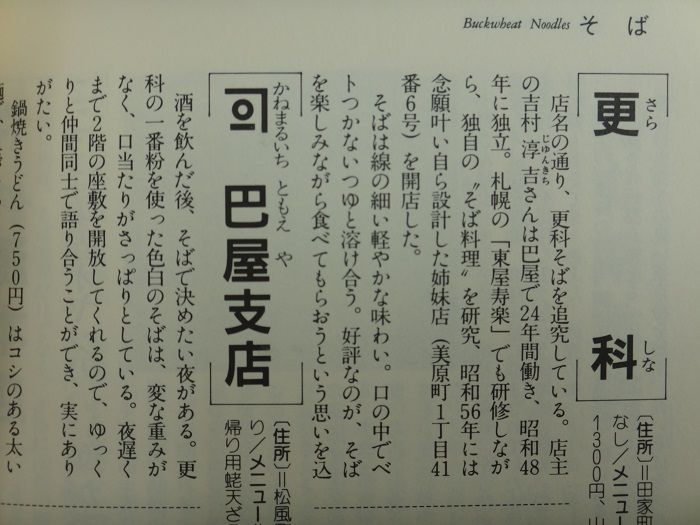 Buckwheat Noodles そば
更科
さらしな
店名の通り、更科そばを追究している。店主
の吉村淳吉さんは巴屋で24年間働き、昭和48
じゅんきち
年に独立。札幌の「東屋寿楽」でも研修しなが
ら、独自の〝そば料理〟を研究、昭和56年には
念願叶い自ら設計した姉妹店（美原町1丁目41
番6号）を開店した。
そばは線の細い軽やかな味わい。口の中でベ
トつかないつゆと溶け合う。好評なのが、そば
を楽しみながら食べてもらおうという思いを込
〔住所〕＝田家町
なし／メニュー
1300円、山
巴屋支店
かねまるいち ともえ や
酒を飲んだ後、そばで決めたい夜がある。更
科の一番粉を使った色白のそばは、変な重みが
なく、口当たりがさっぱりとしている。夜遅く
まで2階の座敷を開放してくれるので、ゆっく
りと仲間同士で語り合うことができ、実にあり
がたい。
鍋焼きうどん（750円）はコシのある太い
〔住所〕＝松風
り／メニュー
帰り用蛯天ざ